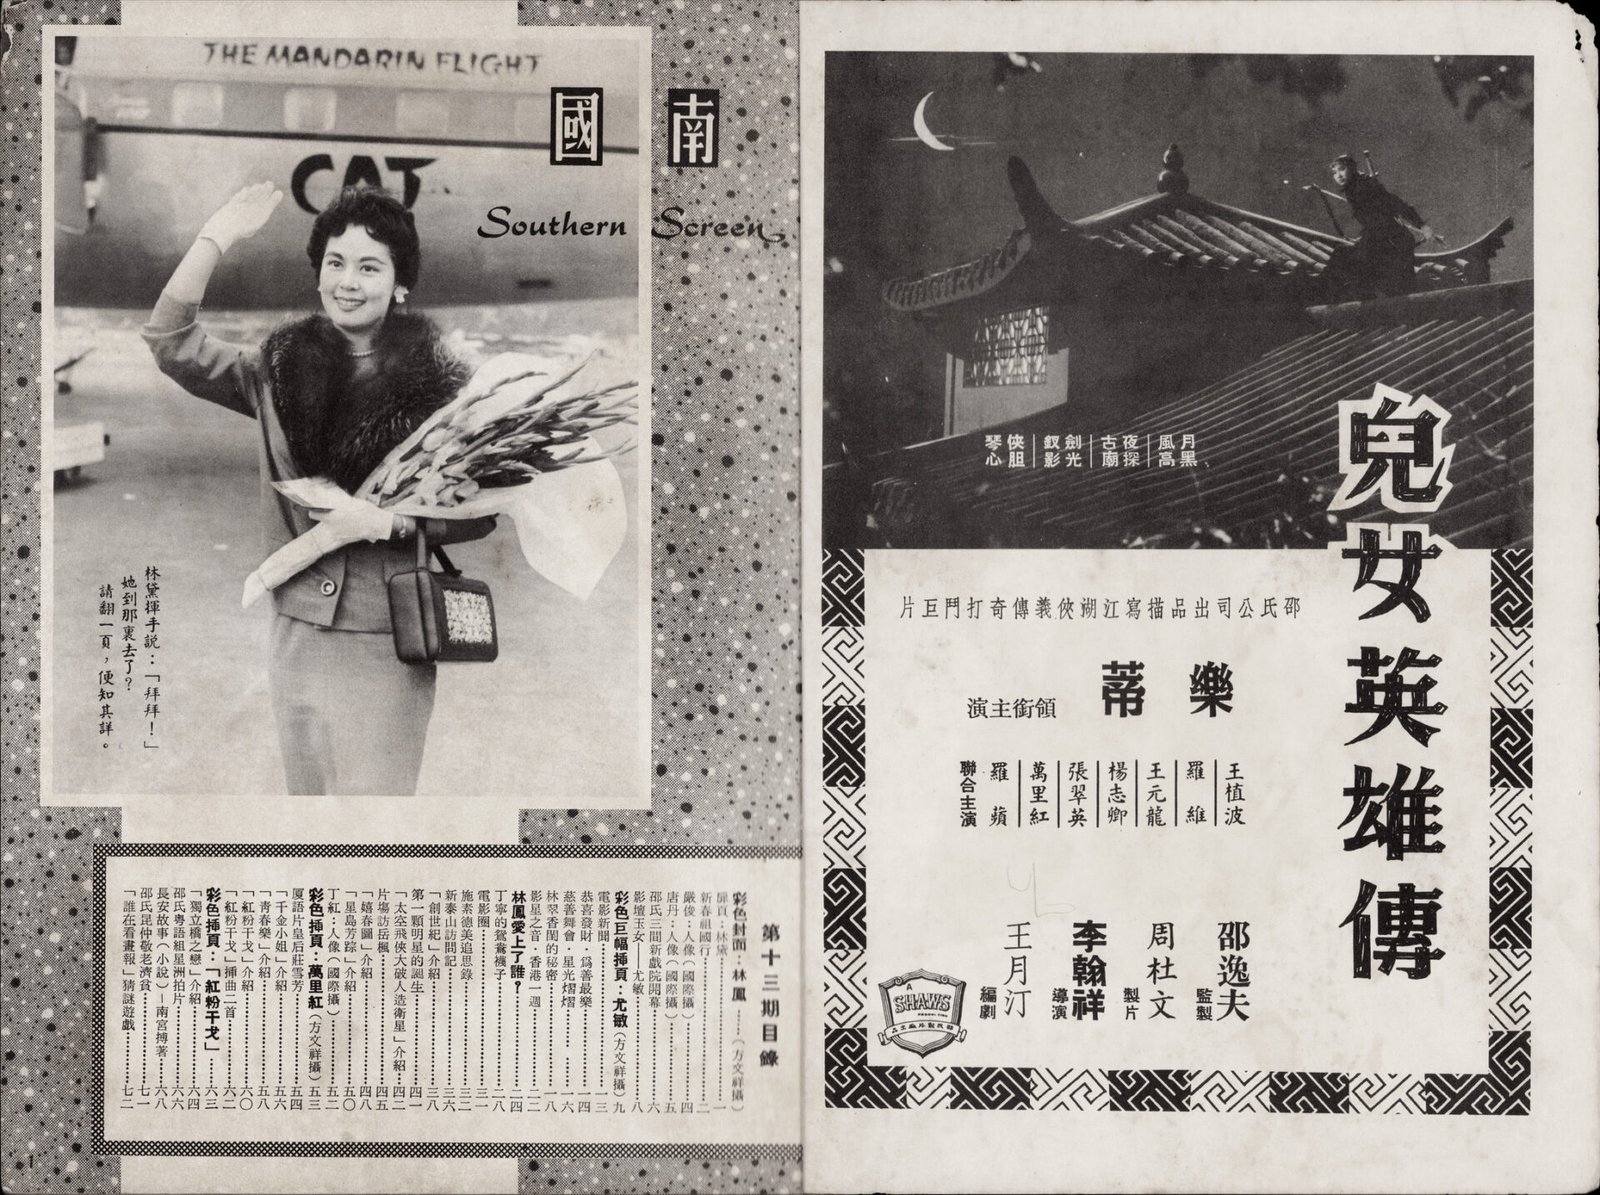 THE MANDARIN FLIGHT
CAT
南國
Southern Screen
林黛揮手説：「拜拜！」
她到那裏去了？
請翻一頁，便知其詳。
第十三期目錄
彩色封面：林鳳……（方文祥攝）
扉頁：林黛……一
新春祖國行……二
嚴俊：人像（國際攝）……四
唐丹：人像（國際攝）……五
邵氏三間新戲院開幕……六
影壇玉女——尤敏……八
彩色巨幅挿頁：尤敏（方文祥攝）九
電影新聞……一三
恭喜發財．爲善最樂……一四
慈善舞會．星光熠熠……一六
林翠香閨的秘密……一八
影星之音．香港一週……二二
林鳳愛上了誰？……二四
丁寧的鴛鴦襪子……二八
電影圈……三一
施素德美追思錄……三二
新泰山訪問記……三六
「創世紀」介紹……三八
第一顆明星的誕生……四一
「太空飛俠大破人造衛星」介紹……四二
片塲訪岳楓……四五
「嬉春圖」介紹……四八
「星島芳踪」介紹……五〇
丁紅：人像（國際攝）……五二
彩色挿頁：萬里紅（方文祥攝）五三
厦語片皇后莊雪芳……五四
「千金小姐」介紹……五六
「青春樂」介紹……五八
「紅粉干戈」介紹……六〇
「紅粉干戈」挿曲二首……六二
彩色挿頁：「紅粉干戈」……六三
「獨立橋之戀」介紹……六四
邵氏粤語組星洲拍片……六六
長安故事（小說）－南宮搏著……六八
邵氏昆仲敬老濟貧……七一
「誰在看畫報」猜謎遊戲……七二
1
月黑風高
夜探古廟
劍光釵影
俠胆琴心
兒女英雄傳
邵氏公司出品描寫江湖俠義傳奇打鬥巨片
樂蒂
領銜主演
王植波
羅維
王元龍
楊志卿
張翠英
萬里紅
羅蘋
聯合主演
邵逸夫 監製
周杜文 製片
李翰祥 導演
王月汀 編劇
A
SHAWS
PRODUCTION